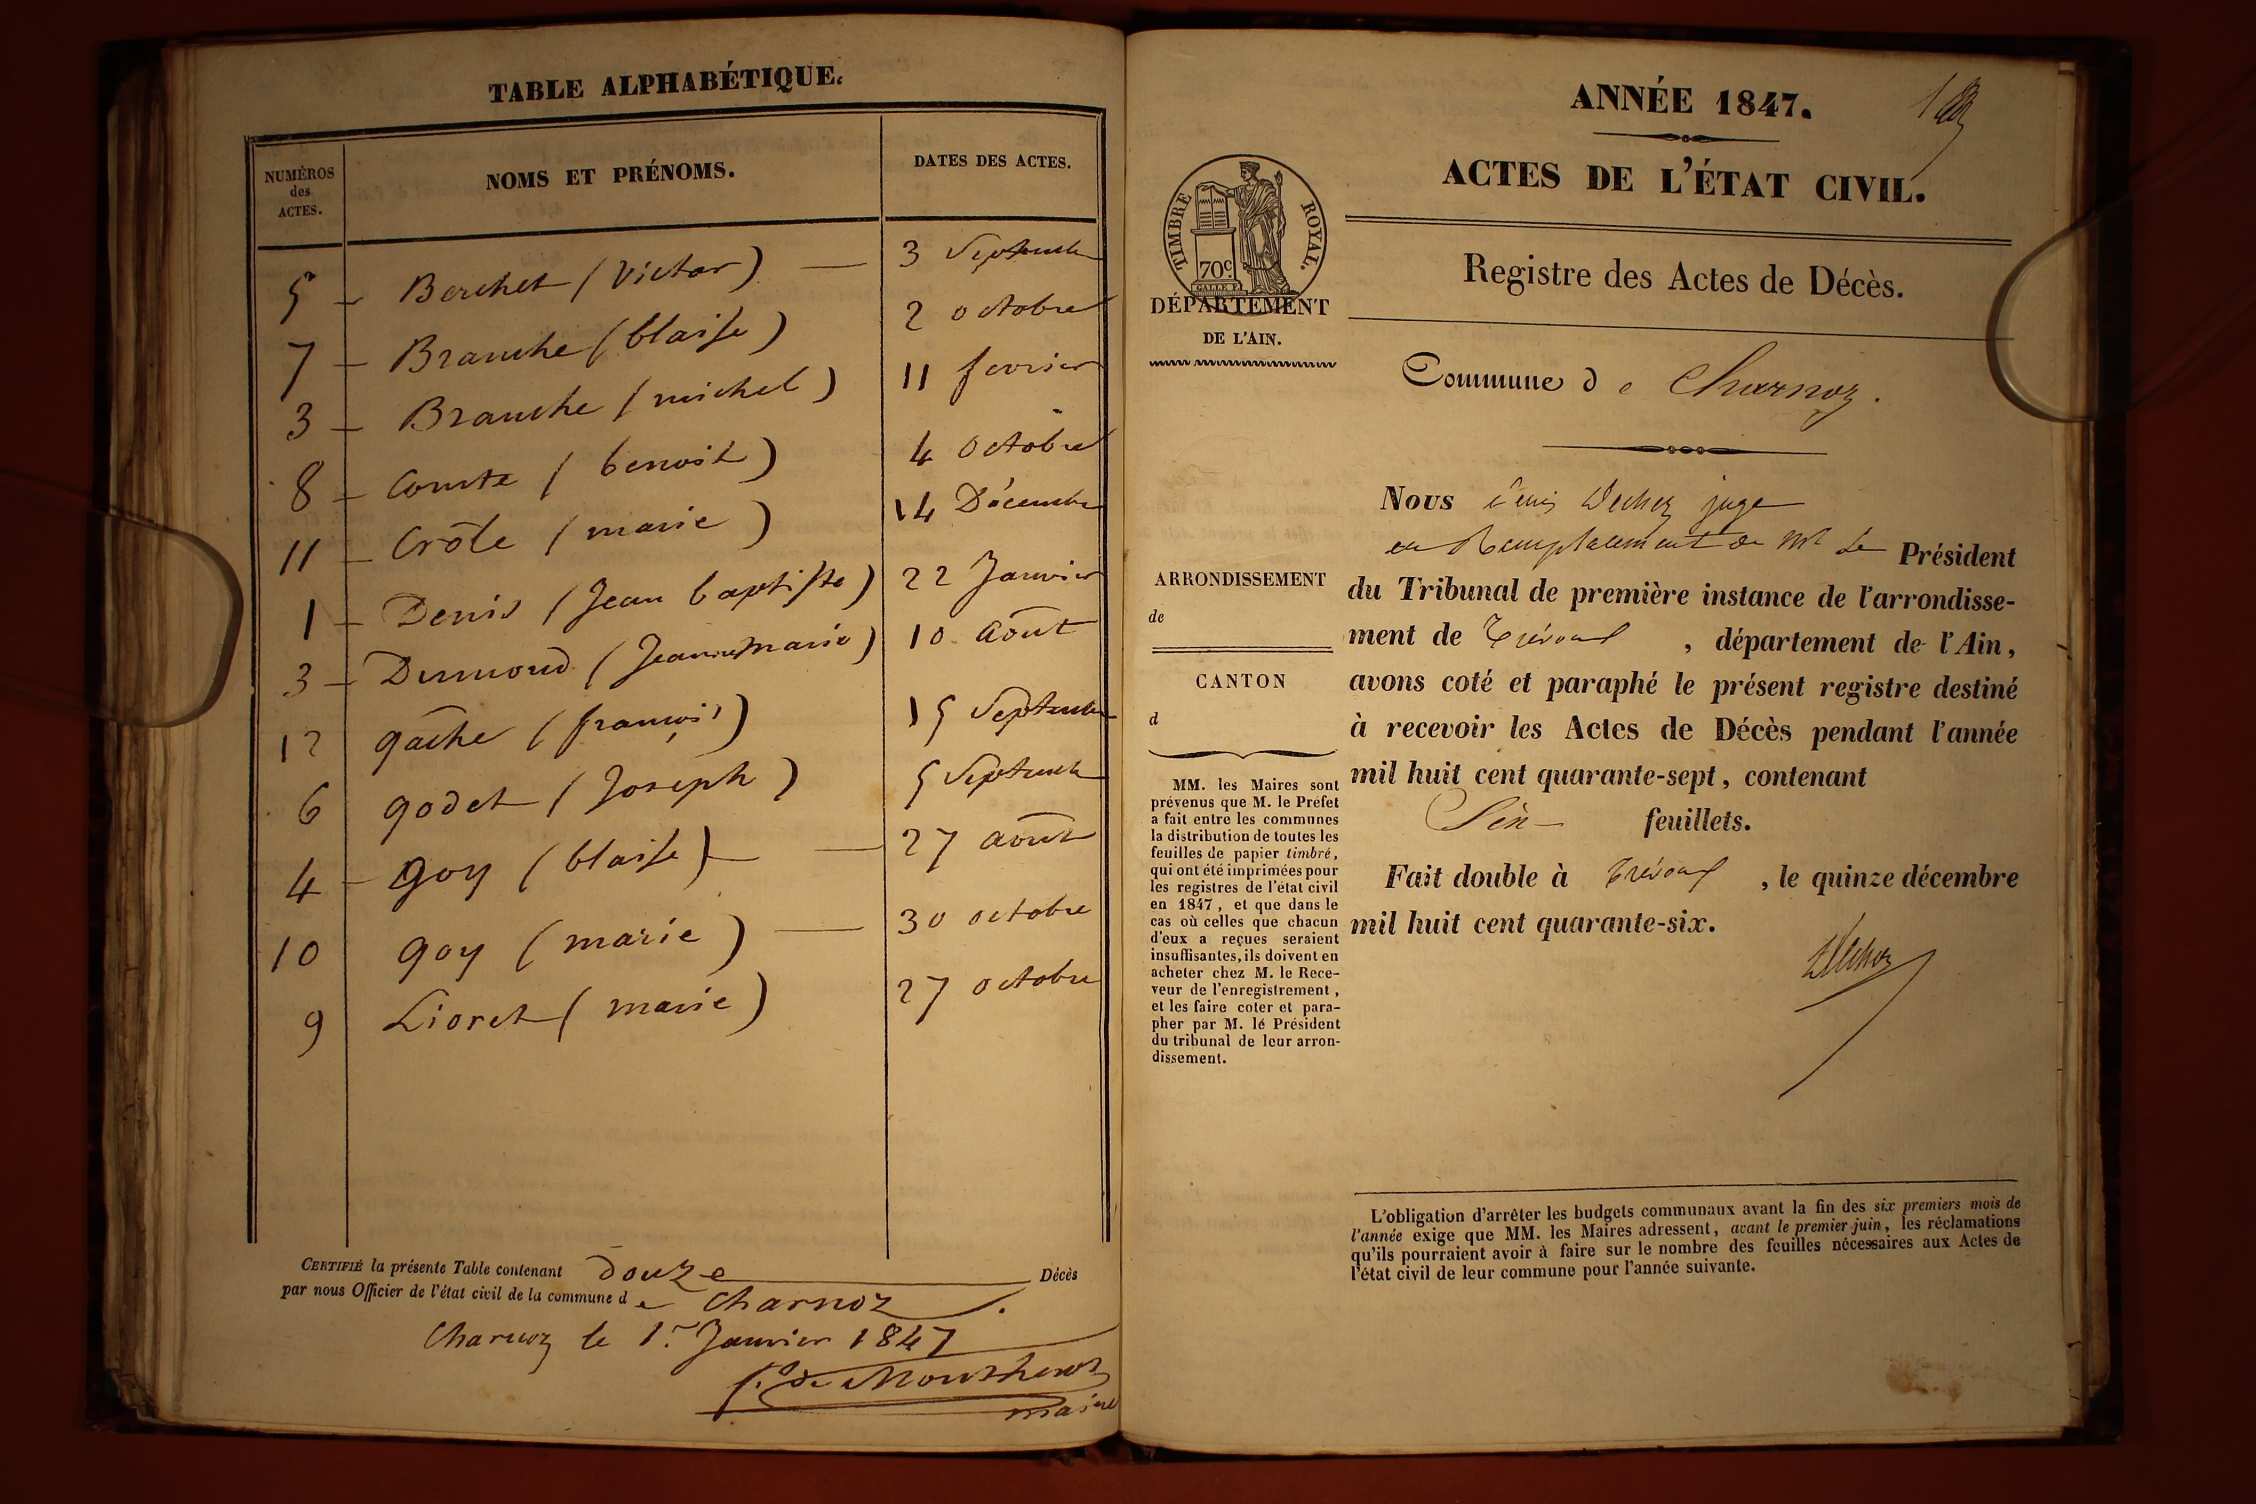 TABLE ALPHABÉTIQUE.
NUMÉROS
des
ACTES.
NOMS ET PRÉNOMS.
DATES DES ACTES.
5 – Berchet (Victor) — 3 Septembre
7 – Branche (blaise) 2 octobre
3 – Branche (michel) 11 fevrier
8 – Comte (benoit) 4 octobre
11 – Crôle (marie) 14 Décembre
1 – Denis (Jean baptiste) 22 Janvier
3 – Dumond (Jeanne marie) 10 août
12 gâche (françois) 15 Septembre
6 godet (Joseph) 5 Septembre
4 – goy (blaise) — 27 août
10 goy (marie) — 30 octobre
9 Lioret (marie) 27 octobre
CERTIFIÉ la présente Table contenant douze Décès
par nous Officier de l'état civil de la commune de charnoz.
Charnoz le 1.r Janvier 1847
maire
ANNÉE 1847.
ACTES DE L'ÉTAT CIVIL.
TIMBRE ROYAL.
70c
DÉPARTEMENT
DE L'AIN.
Registre des Actes de Décès.
Commune de Charnoz.
ARRONDISSEMENT
de
CANTON
d
MM. les Maires sont
prévenus que M. le Préfet
a fait entre les communes
la distribution de toutes les
feuilles de papier timbré,
qui ont été imprimées pour
les registres de l'état civil
en 1847, et que dans le
cas où celles que chacun
d'eux a reçues seraient
insuffisantes, ils doivent en
acheter chez M. le Rece-
veur de l'enregistrement,
et les faire coter et para-
pher par M. lé Président
du tribunal de leur arron-
dissement.
Nous juge
en Remplacement de Mr Le Président
du Tribunal de première instance de l'arrondisse-
ment de Trévoux, département de l'Ain,
avons coté et paraphé le présent registre destiné
à recevoir les Actes de Décès pendant l'année
mil huit cent quarante-sept, contenant
feuillets.
Fait double à Trévoux, le quinze décembre
mil huit cent quarante-six.
L'obligation d'arrêter les budgets communaux avant la fin des six premiers mois de
l'année exige que MM. les Maires adressent, avant le premier juin, les réclamations
qu'ils pourraient avoir à faire sur le nombre des feuilles nécessaires aux Actes de
l'état civil de leur commune pour l'année suivante.